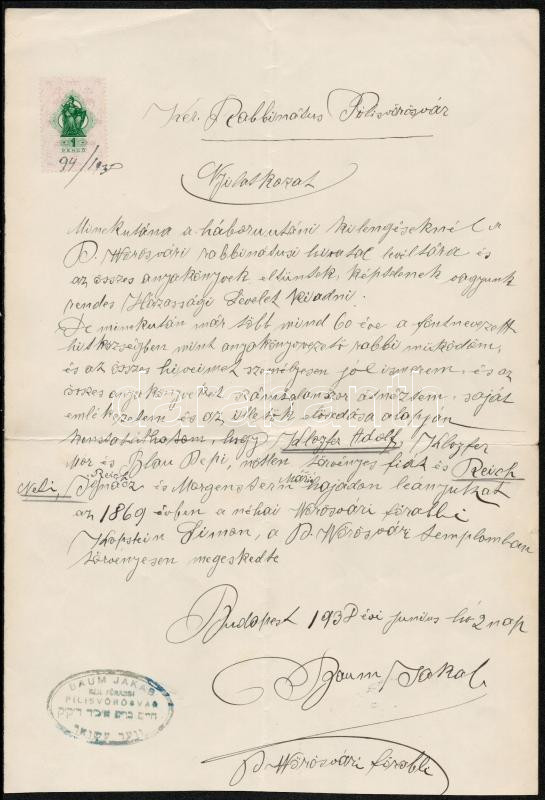 Ker. Rabbinátus Pilisvörösvár
1
PENGŐ
94/1930
Nyilatkozat
Minekutána a háboru utáni kilengéseknél a
P. Vörösvári rabbinátusi hivatal levéltára és
az összes anyakönyvek eltüntek, képtelenek vagyunk
rendes Házassági Levelet kiadni.
De minekután már több mind 60 éve a fentnevezett
hitközségben mint anyakönyvezető rabbi müködöm,
és az összes hiveimet személyesen jól ismerem, és az
összes anyakönyveket számtalanszor átnéztem, saját
emlékezetem és az illetők előadása alapján
tanusithatom, hogy Klopfer Adolf, Klopfer
Mór és Blau Pepi, nőtlen törvényes fiát és Reich
Neti, Reich Ignácz és Morgenstern Mári hajadon leányukat
az 1869 évben a néhai Vörösvári főrabbi
Kopstein Simon, a P. Vörösvári templomban
törvényesen megeskedte
Budapest 193 évi junius hó 2 nap
Baum Jakab
P. Vörösvári főrabbi
BAUM JAKAB
KER. FŐRABBI
PILISVÖRÖSVÁR
darabanth